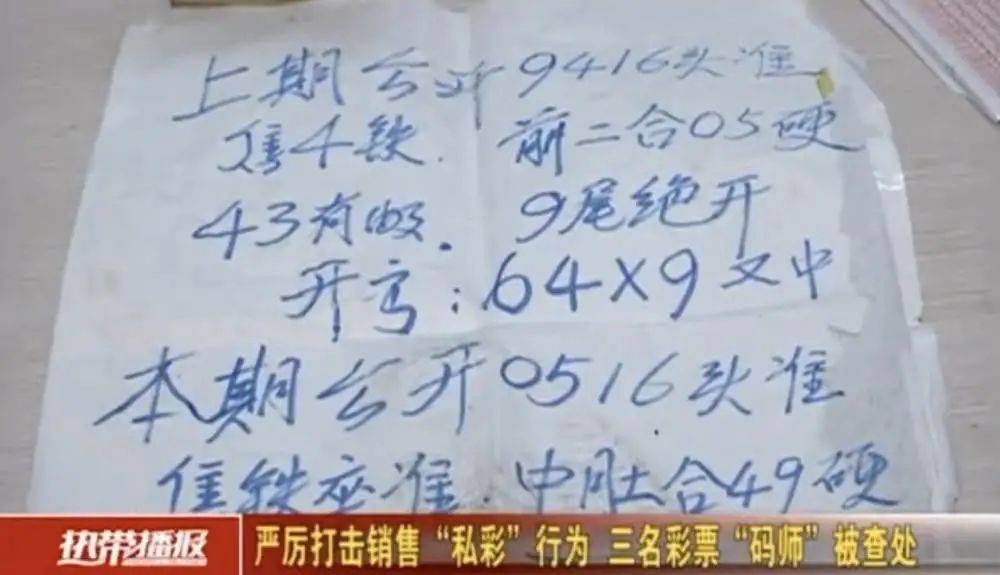 上期公开9416头准
售4铁. 前二合05硬
43有收. 9尾绝开
开亏:64X9又中
本期公开0516头准
售铁应准 中肚合49硬
热带播报
严厉打击销售“私彩”行为 三名彩票“码师”被查处